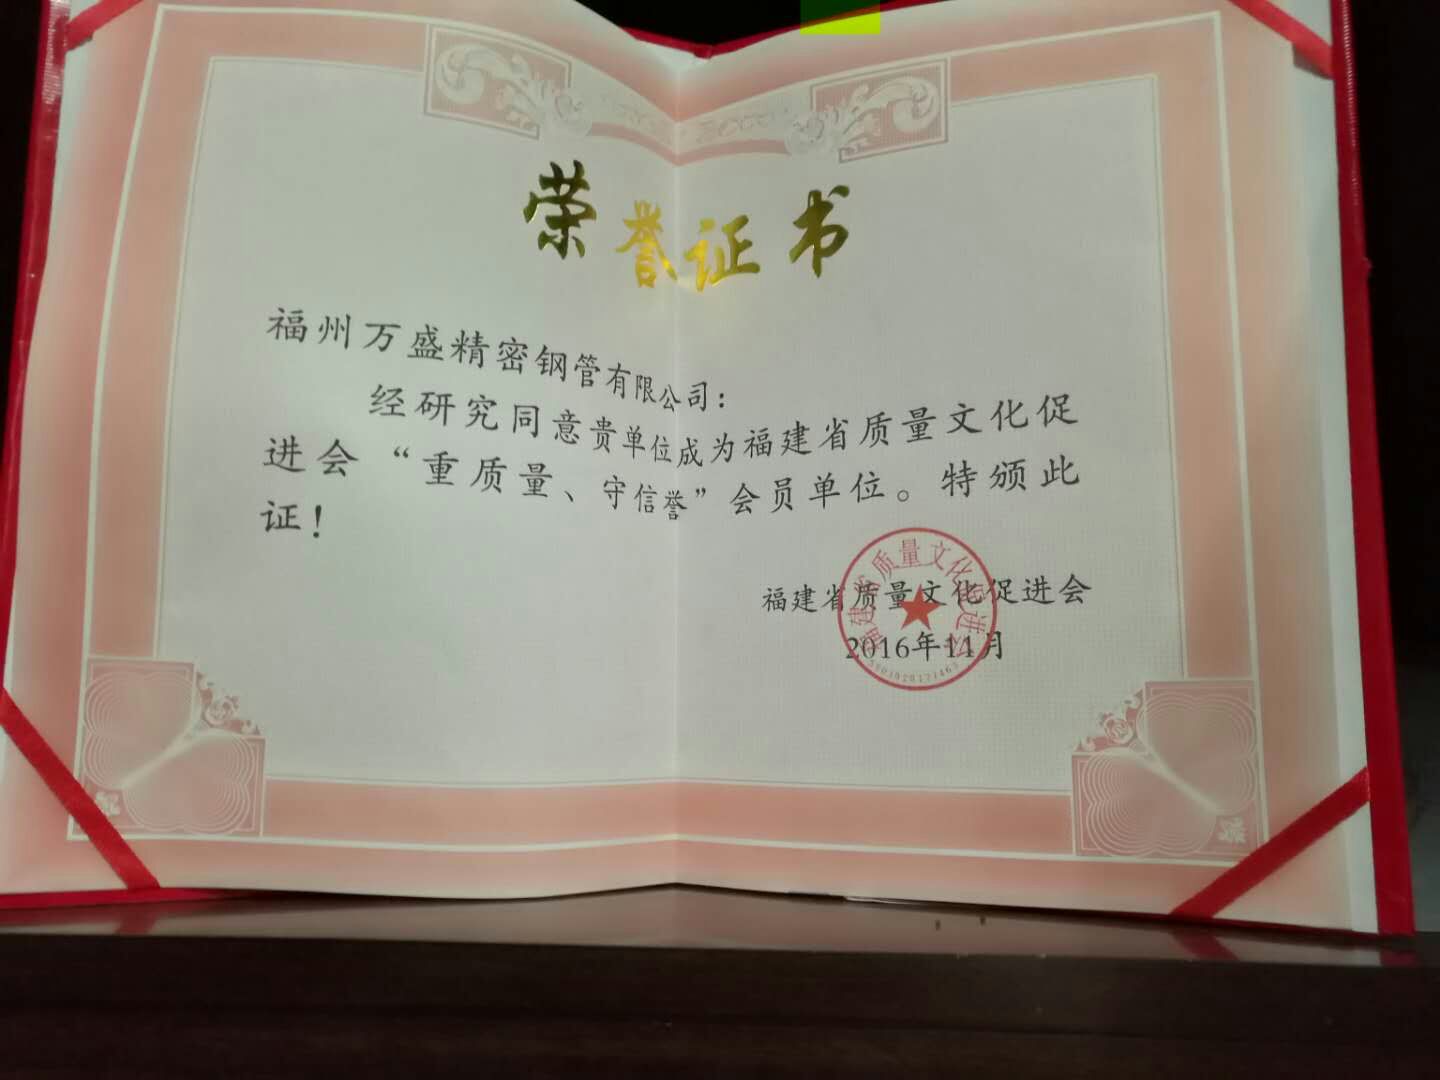 荣誉证书
福州万盛精密钢管有限公司：
经研究同意贵单位成为福建省质量文化促
进会“重质量、守信誉”会员单位。特颁此
证！
福建省质量文化促进会
2016年11月
福建省质量文化促进会